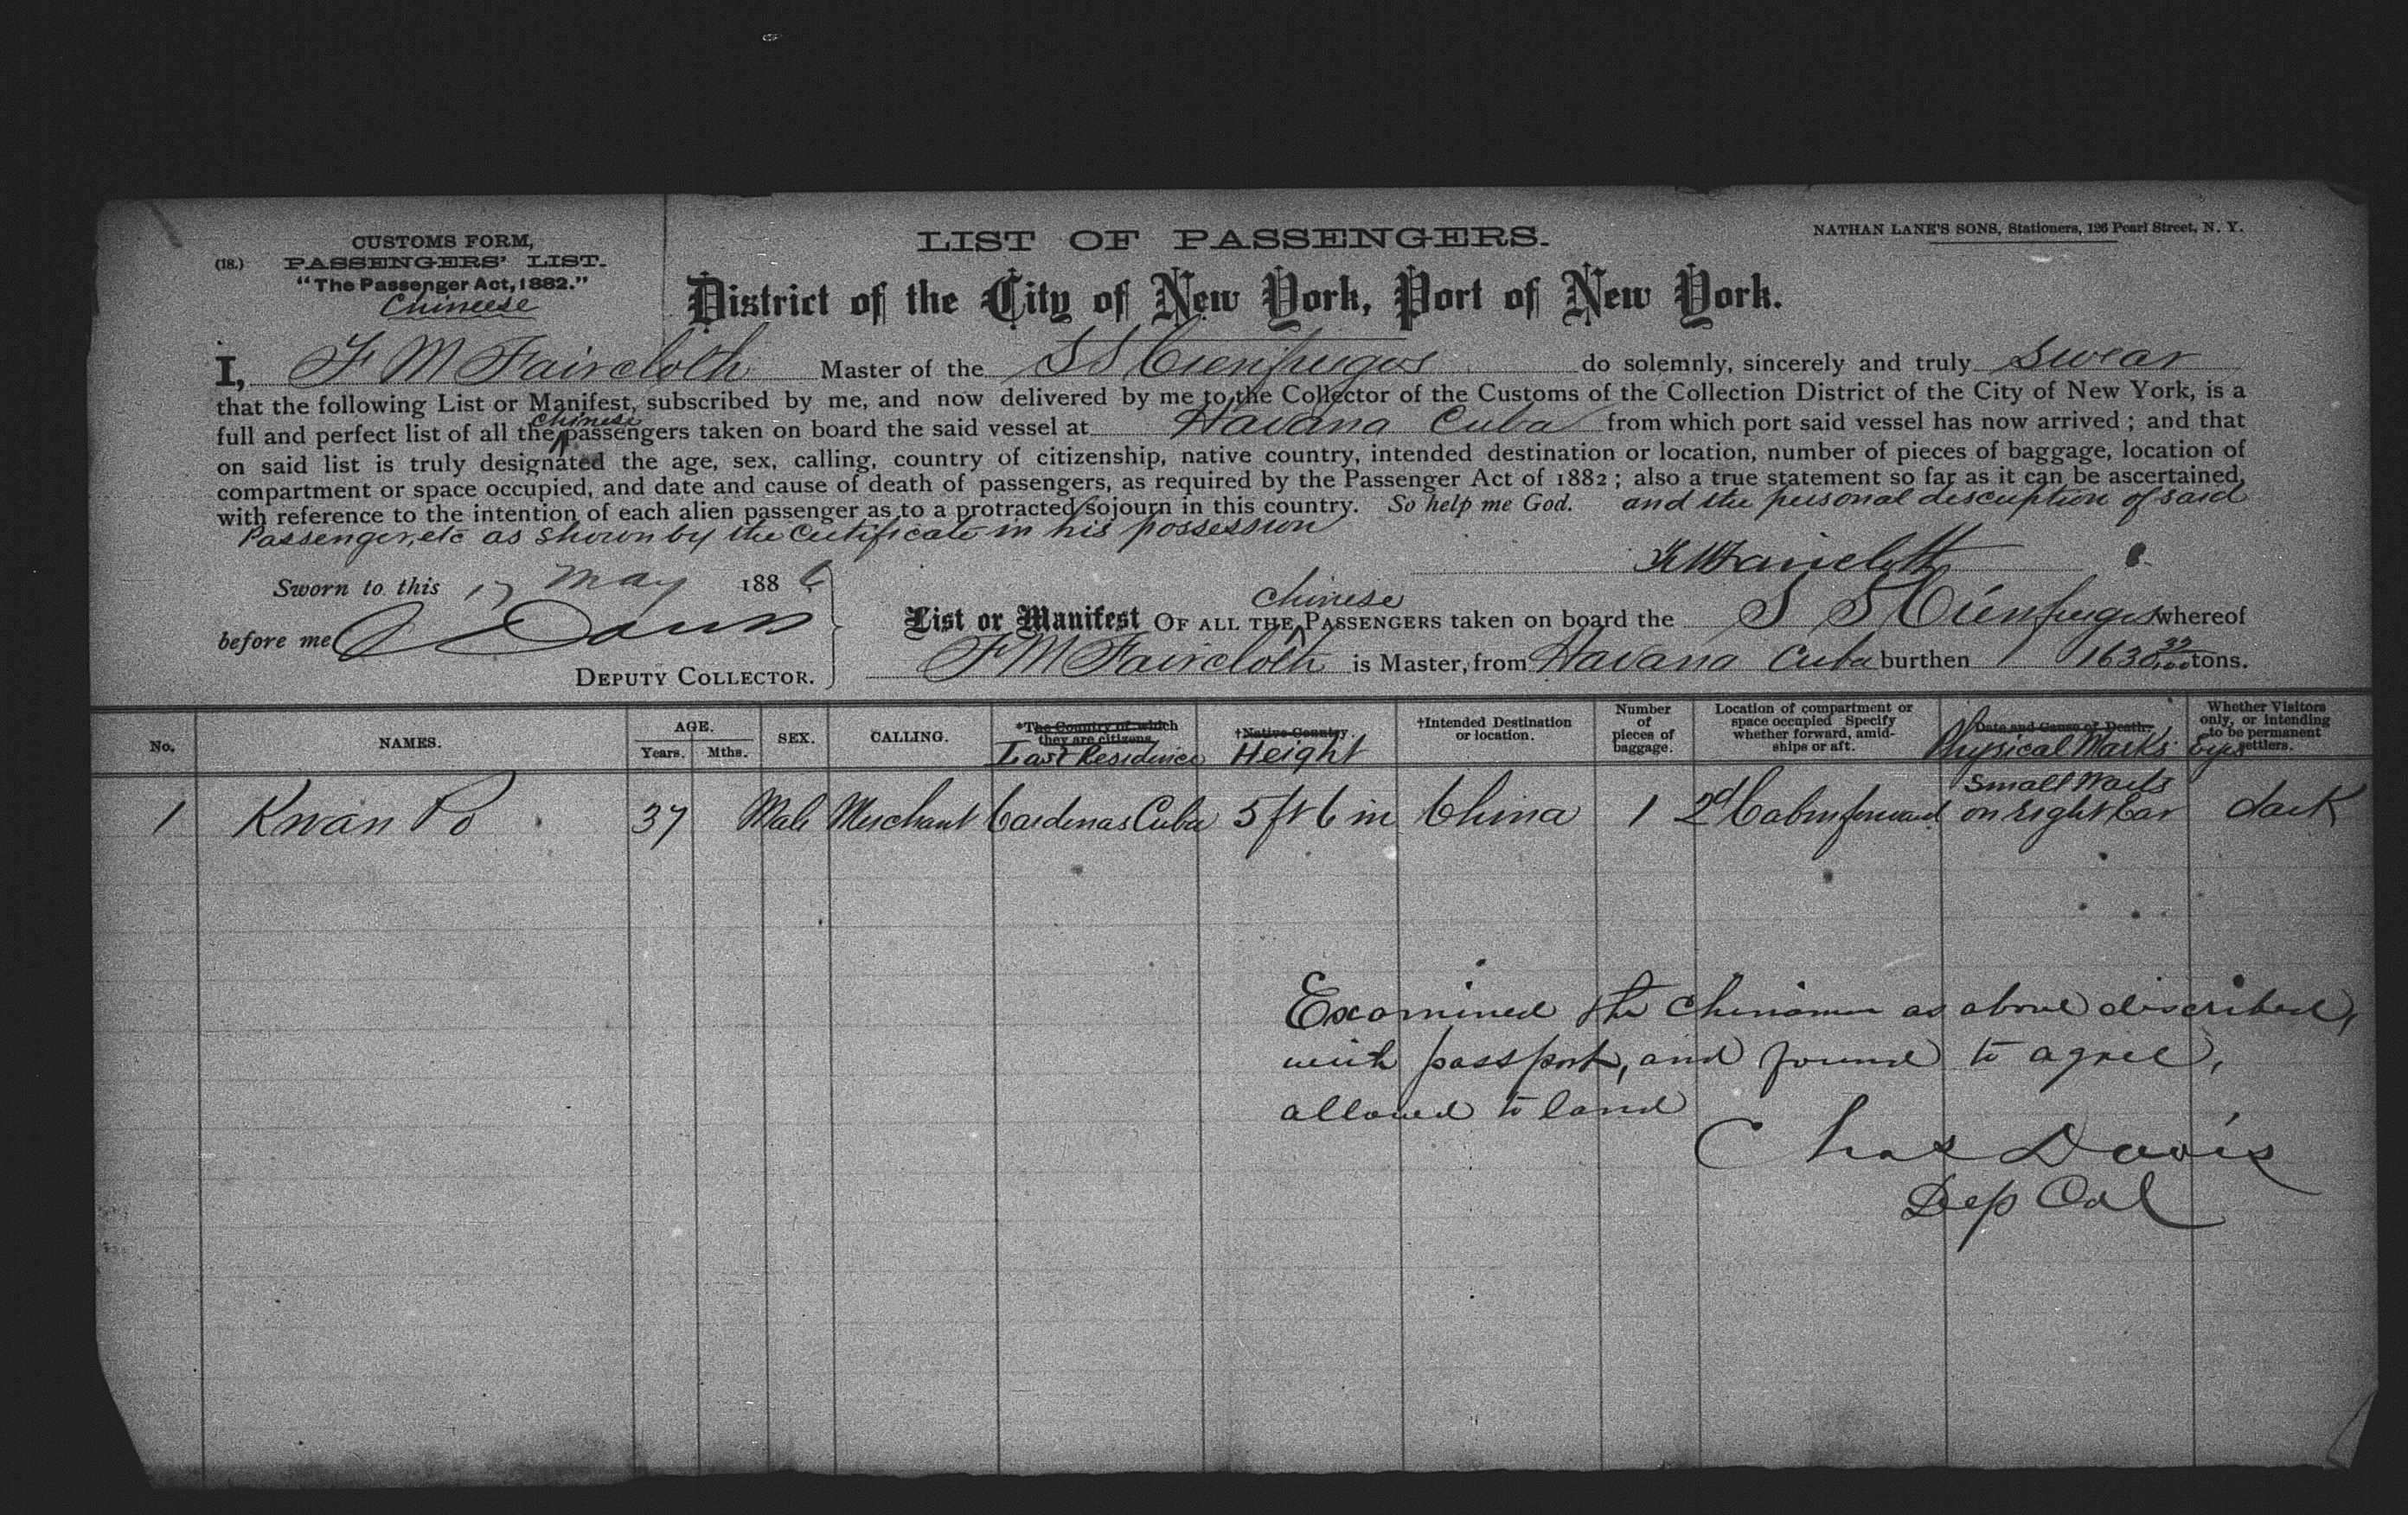 CUSTOMS FORM,
(18.) PASSENGERS' LIST.
"The Passenger Act, 1882."
Chineese
LIST OF PASSENGERS.
NATHAN LANE'S SONS, Stationers, 126 Pearl Street, N. Y.
District of the City of New York, Port of New York.
I, F M Faircloth Master of the S S Cienfuegos do solemnly, sincerely and truly swear
that the following List or Manifest, subscribed by me, and now delivered by me to the Collector of the Customs of the Collection District of the City of New York, is a
full and perfect list of all the Chinese passengers taken on board the said vessel at Havana Cuba from which port said vessel has now arrived; and that
on said list is truly designated the age, sex, calling, country of citizenship, native country, intended destination or location, number of pieces of baggage, location of
compartment or space occupied, and date and cause of death of passengers, as required by the Passenger Act of 1882; also a true statement so far as it can be ascertained,
with reference to the intention of each alien passenger as to a protracted sojourn in this country. So help me God. and the personal discription of said
Passenger, etc as shown by the Certificate in his possession
F M Faircloth
Sworn to this 17 May 1886
before me C Davis
DEPUTY COLLECTOR.
List or Manifest OF ALL THE Chinese PASSENGERS taken on board the S S Cienfuegos whereof
F M Faircloth is Master, from Havana Cuba burthen 1630 32/100 tons.
No. NAMES. AGE. Years. Mths. SEX. CALLING. *The Country of which they are citizens. Last Residence †Native Country. Height †Intended Destination or location. Number of pieces of baggage. Location of compartment or space occupied Specify whether forward, amidships or aft. Date and Cause of Death. Physical Marks Whether Visitors only, or intending to be permanent settlers. Eyes
1 Kwan Po 37 Male Merchant Cardenas Cuba 5 ft 6 in China 1 2d Cabin forward Small Warts on right Ear dark
Examined the Chinaman as above discribed,
with passport, and found to agree,
allowed to land
Chas Davis
Dep Col